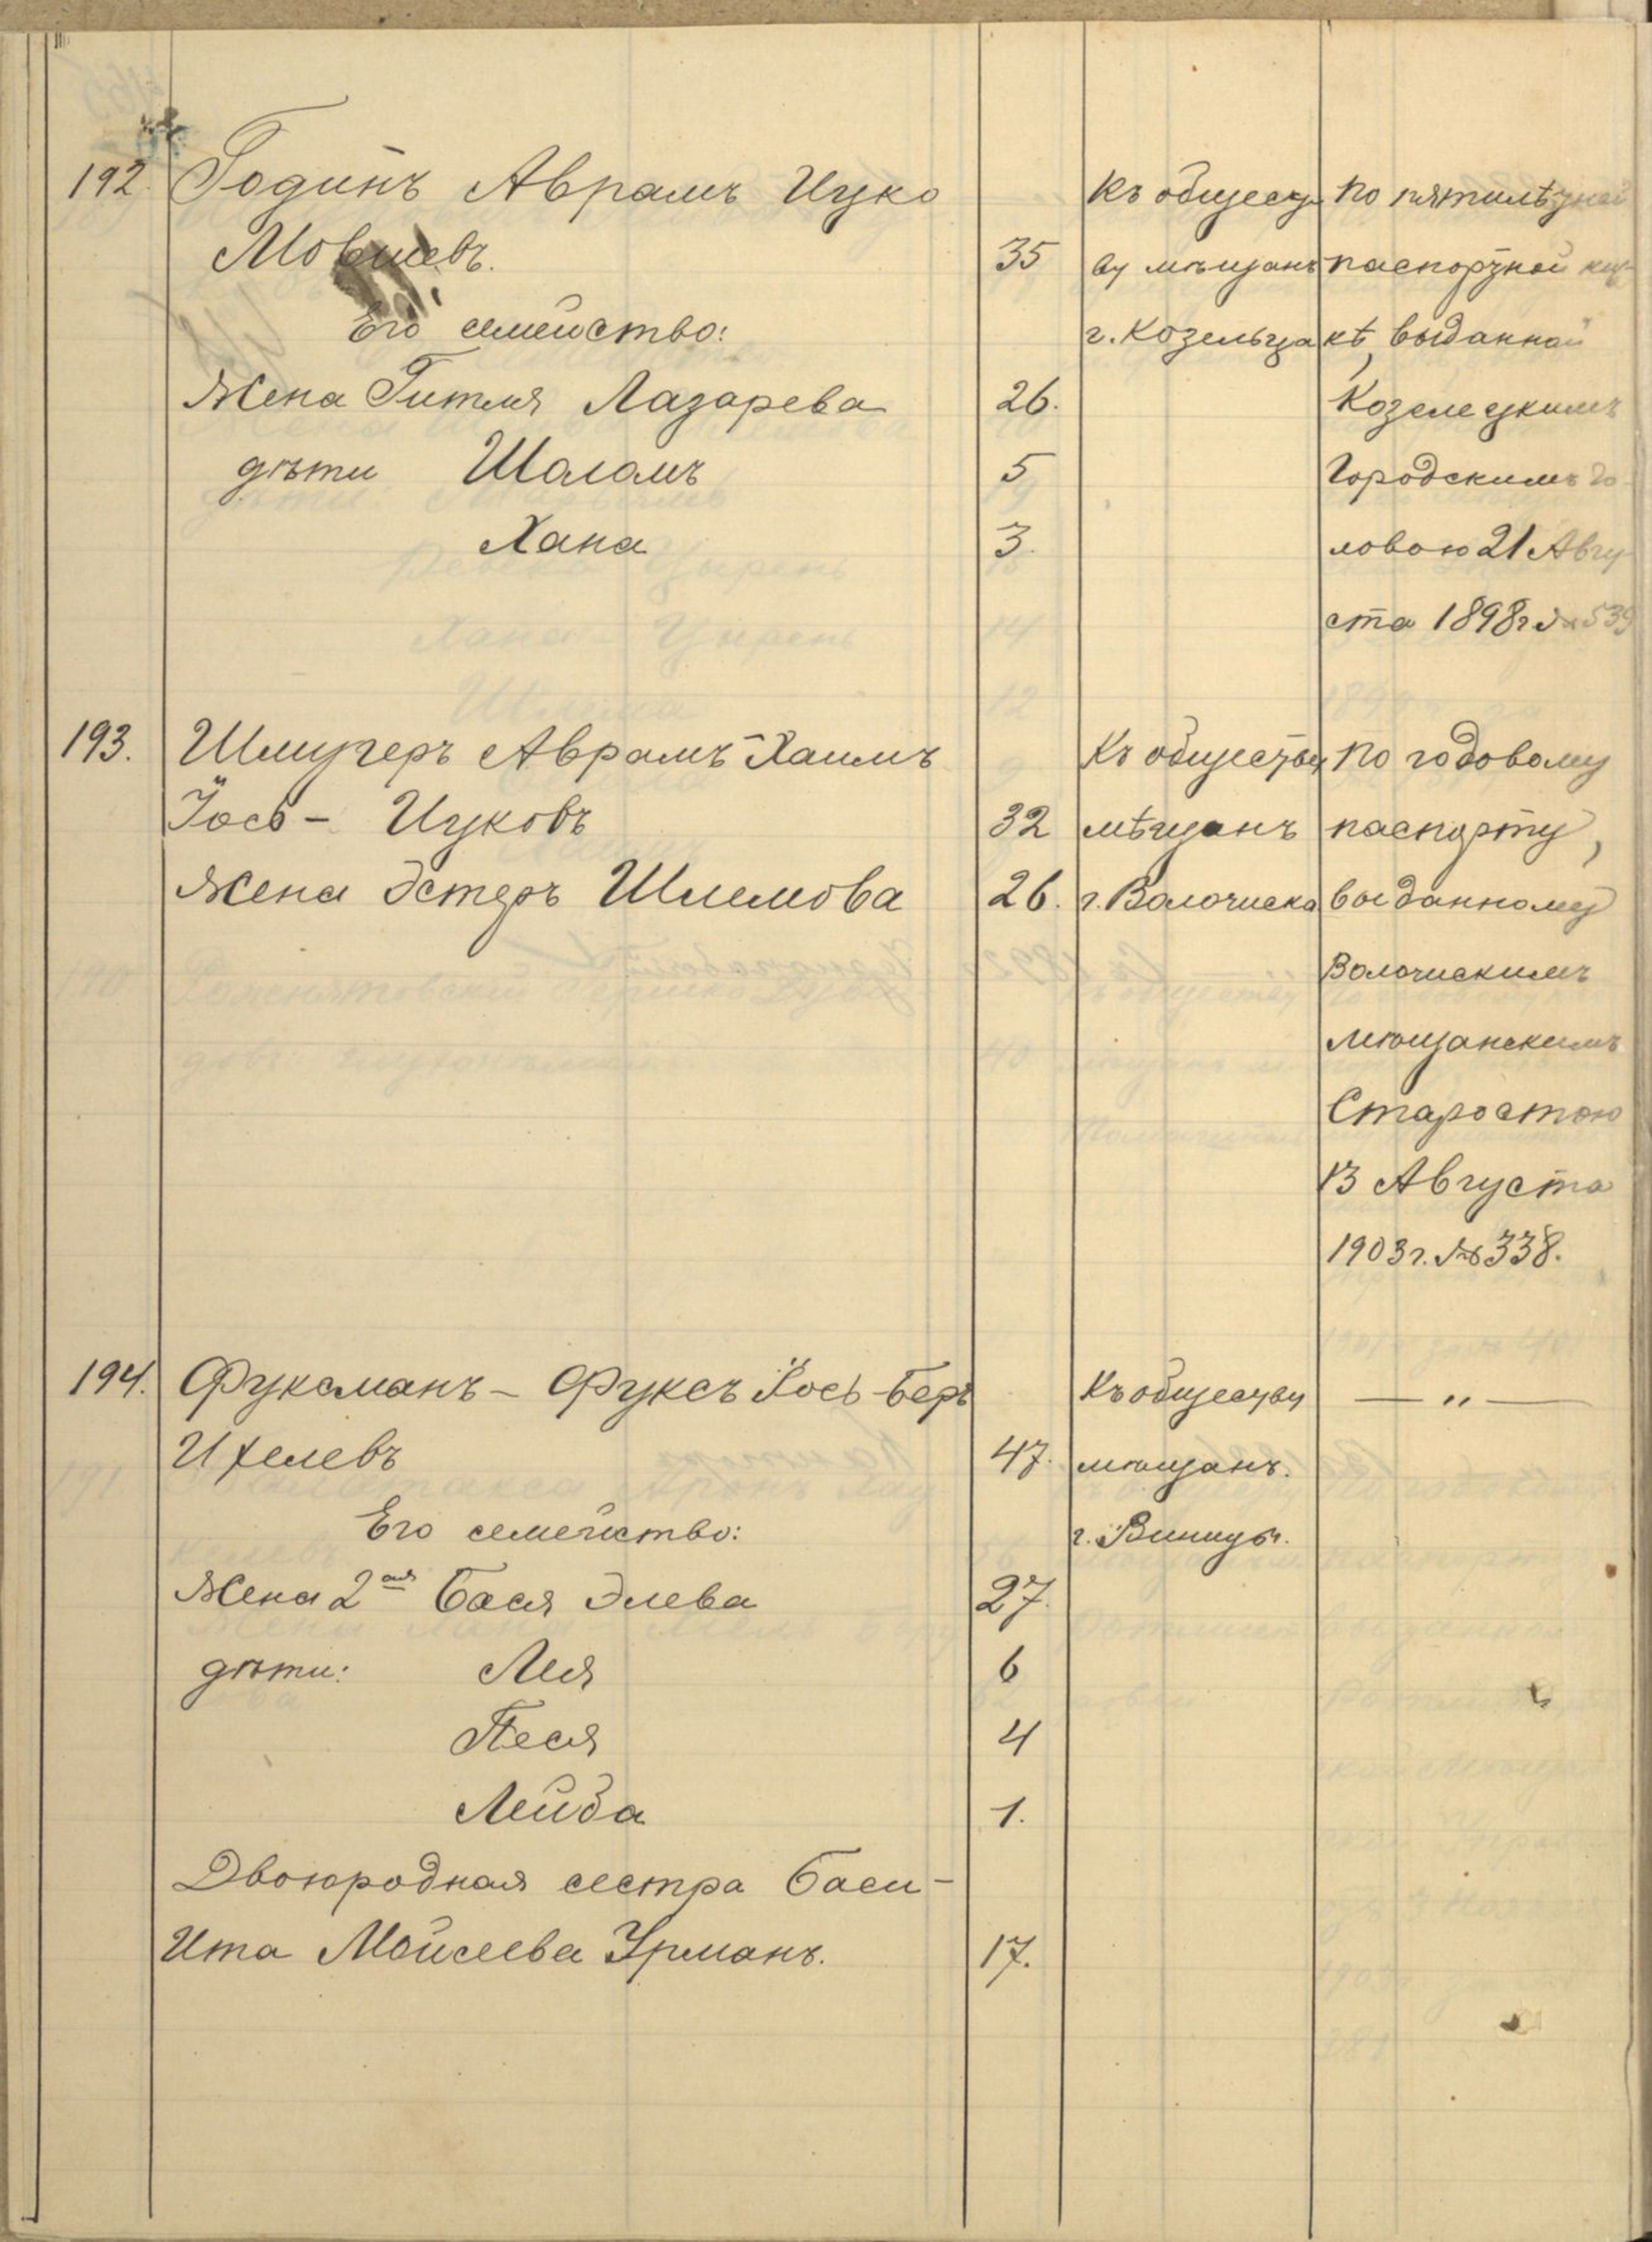 192. Годинъ Аврамъ Ицко
Мовшевъ. 35
Его семейство:
Жена Гитля Лазарева 26.
дѣти Шаломъ 5
Хана 3.
Къ общест
ву мѣщанъ
г. Козельца
По пятилѣтней
паспортной кн
кѣ, выданной
Козелецкимъ
Городскимъ Го
ловою 21 Авгу
ста 1898 г № 539
193. Шмугеръ Аврамъ-Хаимъ
Іось- Ицковъ 32
Жена Эстеръ Шлемова 26.
Къ обществу
мѣщанъ
г. Волочиска
По годовому
паспорту,
выданному
Волочискимъ
мѣщанскимъ
Старостою
13 Августа
1903 г. № 338.
194. Фуксманъ- Фуксъ Іось-Беръ
Ихелевъ 47.
Его семейство:
Жена 2ая Бася Элева 27.
дѣти: Лея 6
Песя 4
Лейба 1.
Двоюродная сестра Баси-
Ита Мойсеева Урманъ. 17.
Къ обществу
мѣщанъ.
г. Винницы.
— " —